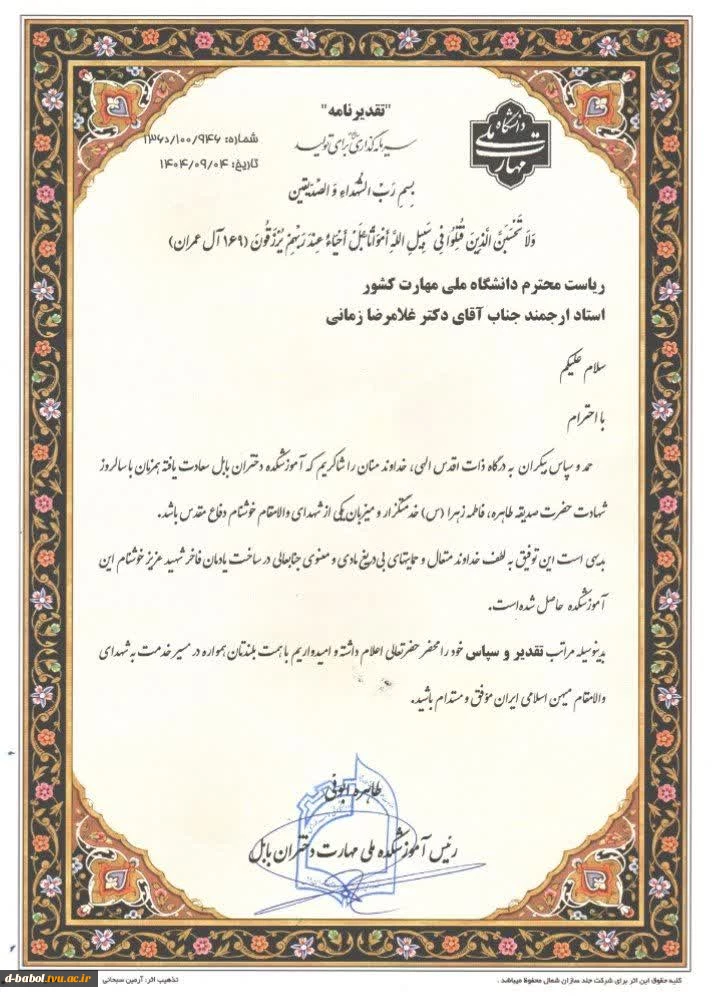 "تقدیرنامه"
سرمایه‌گذاری برای تولید
دانشگاه
ملی
مهارت
شماره: ۱۳۶د/۱۰۰/۹۴۶
تاریخ: ۱۴۰۴/۰۹/۰۴
بِسمِ رَبّ الشُهداءِ وَ الصّدیقین
وَلَا تَحْسَبَنَّ الَّذِينَ قُتِلُوا فِي سَبِيلِ اللَّهِ أَمْوَاتًا بَلْ أَحْيَاءٌ عِندَ رَبِّهِمْ يُرْزَقُونَ (۱۶۹ آل عمران)
ریاست محترم دانشگاه ملی مهارت کشور
استاد ارجمند جناب آقای دکتر غلامرضا زمانی
سلام علیکم
با احترام
حمد و سپاس بیکران به درگاه ذات اقدس الهی، خداوند منان را شاکریم که آموزشکده دختران بابل سعادت یافته همزمان با سالروز
شهادت حضرت صدیقه طاهره، فاطمه زهرا (س) خدمتگزار و میزبان یکی از شهدای والامقام خوشنام دفاع مقدس باشد.
بدیهی است این توفیق به لطف خداوند متعال و حمایتهای بی‌دریغ مادی و معنوی جنابعالی در ساخت یادمان فاخر شهید عزیز خوشنام این
آموزشکده حاصل شده است.
بدینوسیله مراتب تقدیر و سپاس خود را محضر حضرتعالی اعلام داشته و امیدواریم با همت بلندتان همواره در مسیر خدمت به شهدای
والامقام میهن اسلامی ایران موفق و مستدام باشید.
طاهره ابوئی
رئیس آموزشکده ملی مهارت دختران بابل
کلیه حقوق این اثر برای شرکت جلد سازان شمال محفوظ میباشد .
تذهیب اثر: آرمین سبحانی
d-babol.tvu.ac.ir